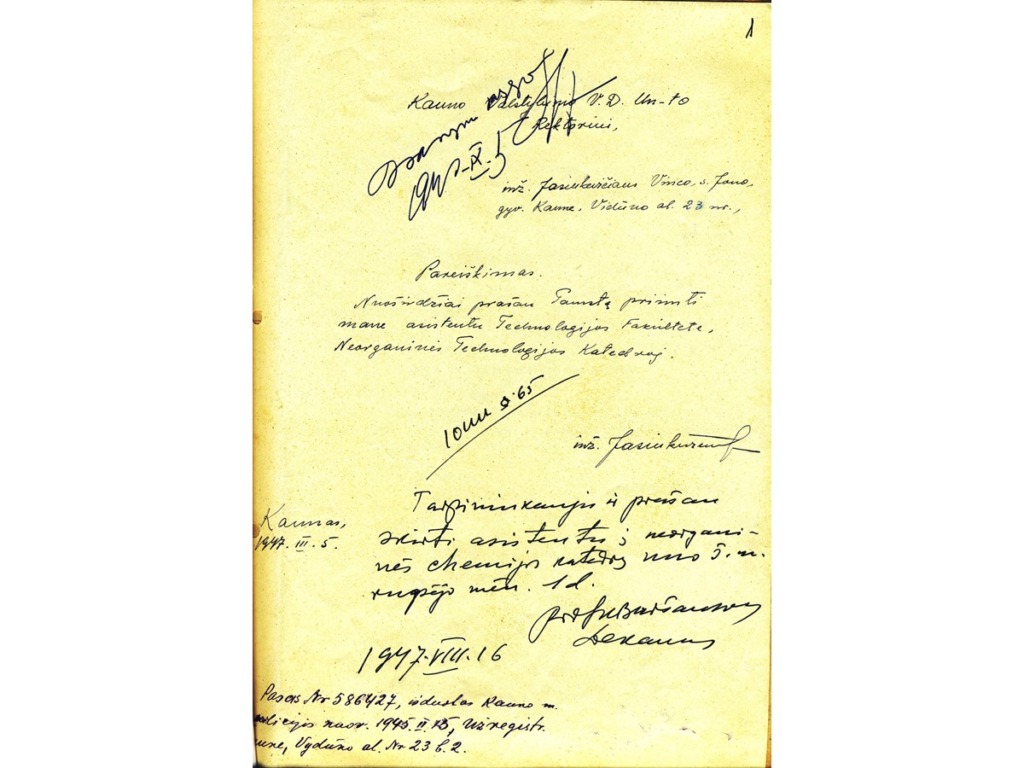 1
Kauno Valstybinio V.D. Un-to
Rektoriui,
IX. 5
inž. Jasiukevičiaus Vinco, s. Jono,
gyv. Kaune, Vidūno al. 23 nr.,
Pareiškimas.
Nuoširdžiai prašau Tamstą priimti
mane asistentu Technologijos Fakultete,
Neorganinės Technologijos Katedroj.
inž.
Tarpininkauju ir prašau
skirti asistentu į neorgani-
nės chemijos katedrą nuo š. m.
rugsėjo mėn. 1 d.
Kaunas,
1947. III. 5.
prof.
Dekanas
1947.VIII.16
Pasas Nr 586427, išduotas Kauno m.
1945. II. 15, Užregistr.
Vydūno al. Nr 23 b. 2.